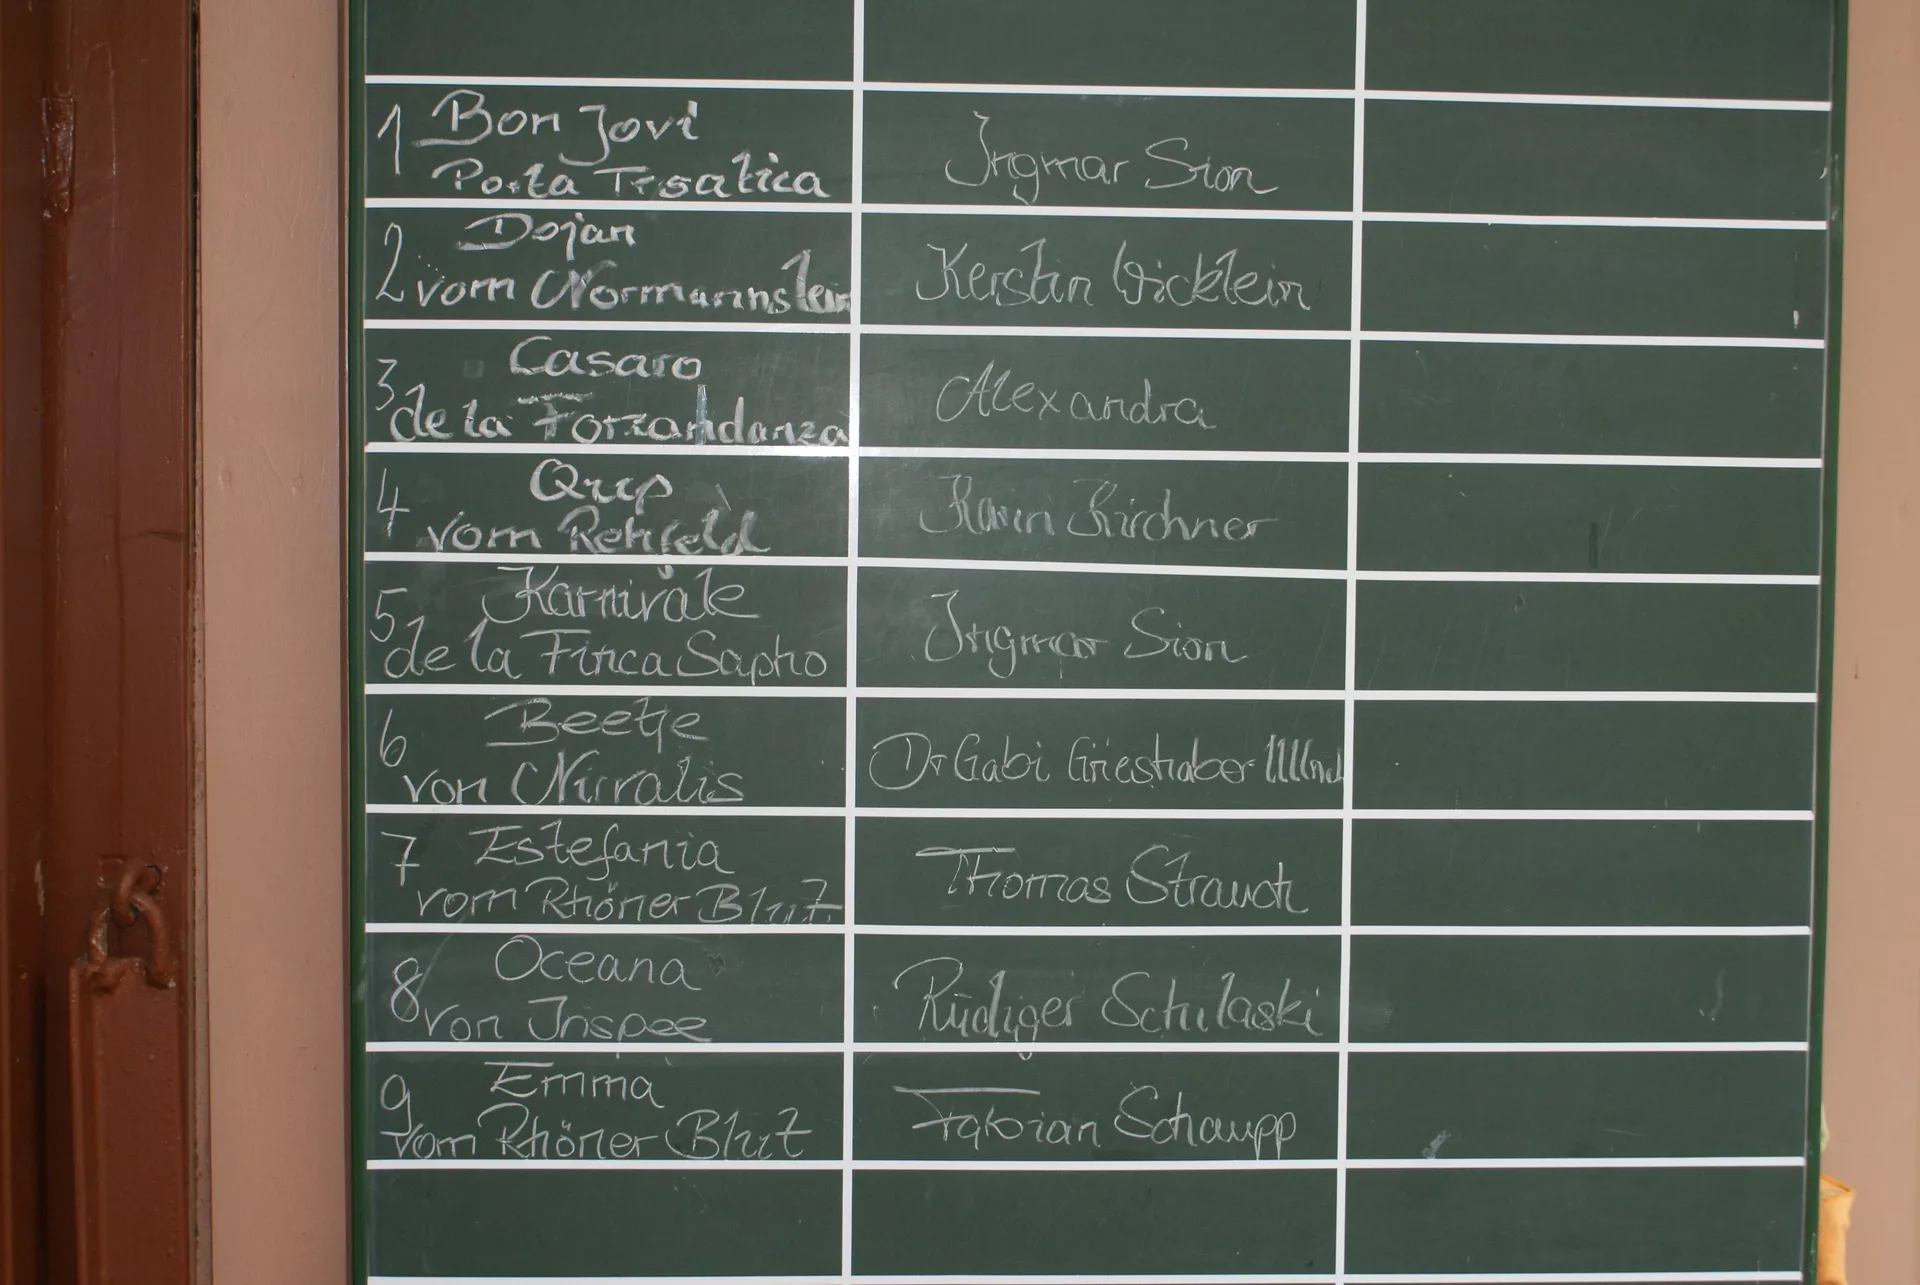 1 Bon Jovi
Porta Tssatica
Ingmar Sion
2 Dojan
vom Normannstein
Kerstin Wicklein
3 Casaro
de la Forzandanza
Alexandra
4 Quip
vom Rehfeld
Karin Kirchner
5 Karnivale
de la Finca Sapho
Ingmar Sion
6 Beetje
von Nirralis
Dr Gabi Grieshaber
7 Estefania
vom Rhöner Blut
Thomas Strauch
8 Oceana
von Inspee
Rüdiger Schulaski
9 Emma
vom Rhöner Blut
Fabian Schaupp